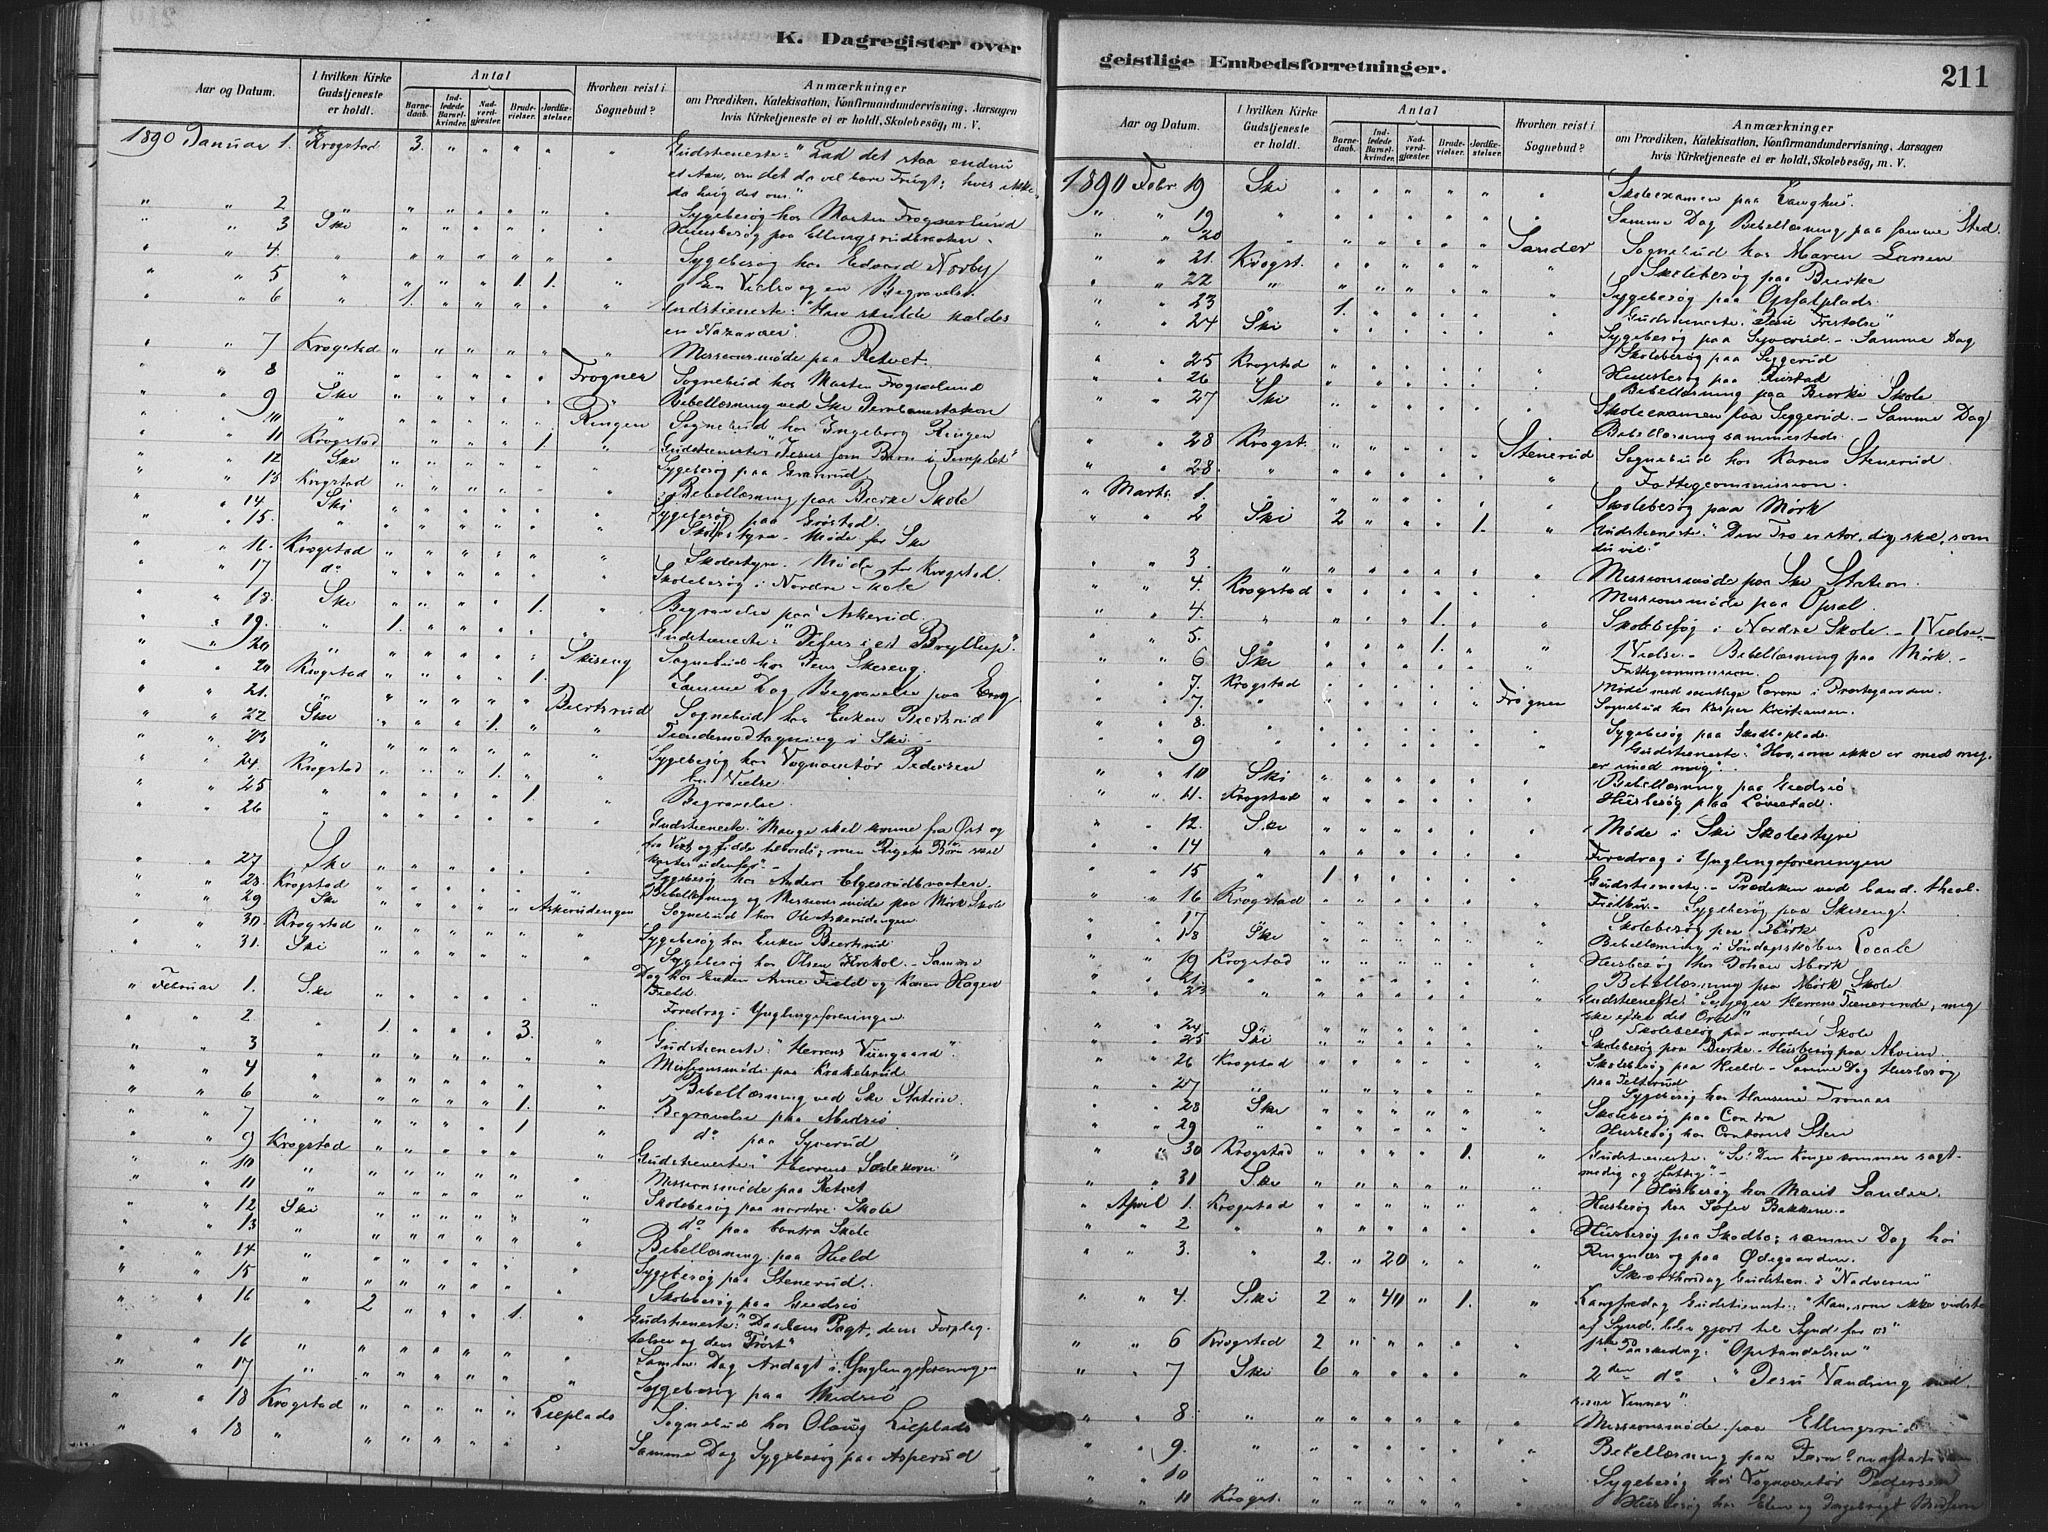 K. Dagregister over
Aar og Datum.
I hvilken Kirke Gudstjeneste er holdt.
Antal
Barnedaab.
Indledede Barselkvinder.
Nadverdgjæster.
Brudevielser.
Jordfæstelser.
Hvorhen reist i Sognebud?
Anmærkninger
om Prædiken, Katekisation, Konfirmandundervisning, Aarsagen
hvis Kirketjeneste ei er holdt, Skolebesøg, m. V.
1890 Januar 1. Krogstad 3. " " " " " Gudstieneste: "Lad det staa endnu
et Aar, om det da vil bære Frugt; hvis ikke
da hug det om."
" " 2 " " " " " " " Sygebesøg hos Martin Frognerlund
" " 3 Ski " " " " " " Huusbesøg paa Ellingsrudbraaten
" " 4. " " " " " " " Sygebesøg hos Edvard Nærby
" " 5 " " " " 1. 1. " En Vielse og en Begravelse
" " 6 " 1. " " " " " Gudstieneste: "Han skulde kaldes
en Nazaræer".
" " 7 Krogstad " " " " " " Missionsmøde paa Retvet.
" " 8 " " " " " " Frogner Sognebud hos Martin Frognerlund
" " 9 Ski " " " " " " Bibellæsning ved Ski Jernbanestation
" " 10 " " " " " " Ringen Sognebud hos Ingeborg Ringen
" " 11 Krogstad " " " " 1. " Gudstieneste "Jesus som Barn i Templet"
" " 12 Ski " " " " " " Sygebesøg paa Granrud
" " 13 Krogstad " " " " " " Bibellæsning paa Bierke Skole
" " 14 Ski " " " " " " Sygebesøg paa Grøstad.
" " 15. " " " " " " " Skolestyre-Møde for Ski
" " 16. Krogstad " " " " " " Skolestyre-Møde for Krogstad.
" " 17 do " " " " " " Skolebesøg i Nordre Skole
" " 18. Ski " " " " 1. " Begravelse paa Askerud.
" " 19. " 1. " " " " " Gudstieneste: "Jesus i et Bryllup".
" " 20 " " " " " " Skiseng Sognebud hos Jens Skiseng.
" " 20 Krogstad " " " " 1. " Samme Dag Begravelse paa
" " 21. " " " " " " Biertsrud Sognebud hos Enken Biertsrud
" " 22 Ski " " " 1. " " Tiendemodtagning i Ski.
" " 23 " " " " " " " Sygebesøg hos Vognmontør Pedersen
" " 24. Krogstad " " " 1. " " En Vielse
" " 25 " " " " " 1. " Begravelse.
" " 26 " " " " " " " Gudstieneste "Mange skal komme fra Øst og
fra Vest og sidde tilbords; men Rigets Børn skal
kastes udenfor".
" " 27 Ski " " " " " " Sygebesøg hos Anders Elgesrudbraaten.
" " 28 Krogstad " " " " " " Bibellæsning og Missionsmøde paa Mørk Skole
" " 29 Ski " " " " " Askerudengen Sognebud hos Ole Askerudengen
" " 30. Krogstad " " " " " " Sygebesøg hos Enken Biertsrud
" " 31. Ski " " " " " " Sygebesøg hos Olsen Krokol. Samme
Dag hos Enken Anne Field og Karen Hagen
Field.
" Februar 1. Ski " " " " " " Foredrag i Ynglingeforeningen
" " 2 " 1. " " " 3. " Gudstieneste: "Herrens Viingaard".
" " 3 " " " " " " " Missionsmøde paa Krakelsrud
" " 4 " " " " " " " Bibellæsning ved Ski Station.
" " 6 " " " " " 1. " Begravelse paa Midsiø.
" " 7 " " " " " 1 " do paa Syverud
" " 9 Krogstad " " " " " " Gudstieneste: "Herrens Sædekorn"
" " 10 " " " " " " " Missionsmøde paa Retvet
" " 11 " " " " " " " Skolebesøg paa nordre Skole
" " 12 Ski " " " " " " do paa Contra Skole
" " 13 " " " " " " " Bibellæsning paa Hield
" " 14 " " " " " " " Sygebesøg paa Stenerud.
" " 15 " " " " " " " Skolebesøg paa Giedsiø
" " 16 " 2 " " " 1. " Gudstieneste: "Daabens Pagt, dens Forplig-
telser og dens Trøst"
" " 16 " " " " " " " Samme Dag Andagt i Ynglingeforeningen
" " 17 " " " " " " " Sygebesøg paa Midsiø
" " 18 Krogstad " " " " " Lieplads Sognebud hos Olaug Lieplads
" " 18 " " " " " " " Samme Dag Sygebesøg paa Asperud
geistlige Embedsforretninger.
211
Aar og Datum.
I hvilken Kirke Gudstjeneste er holdt.
Antal
Barnedaab.
Indledede Barselkvinder.
Nadverdgjæster.
Brudevielser.
Jordfæstelser.
Hvorhen reist i Sognebud?
Anmærkninger
om Prædiken, Katekisation, Konfirmandundervisning, Aarsagen
hvis Kirketjeneste ei er holdt, Skolebesøg, m. V.
1890 Febr. 19 Ski " " " " " " Skoleexamen paa Langhus.
" " 19 " " " " " " " Samme Dag Bibellæsning paa samme Sted.
" " 20 " " " " " " Sander Sognebud hos Maren Larsen
" " 21. Krogst. " " " " " " Skolebesøg paa Bierke
" " 22 " " " " " " " Sygebesøg paa Opsalplads
" " 23 " 1. " " " " " Gudstieneste "Jesu Fristelse"
" " 24 Ski " " " " " " Sygebesøg paa Syverud. Samme Dag
Skolebesøg paa Siggerud
" " 25 Krogstad " " " " " " Huusbesøg paa Rustad
" " 26 " " " " " " " Bibellæsning paa Bierke Skole
" " 27 Ski " " " " " " Skoleexamen paa Siggerud. Samme Dag
Bibellæsning sammesteds.
" " 28 Krogst. " " " " " Stenerud Sognebud hos Karen Stenerud.
" " 28. " " " " " " " Fattigcommission.
" Marts 1. " " " " " " " Skolebesøg paa Mørk
" " 2 Ski 2 " " " 1. " Gudstieneste: "Din Tro er stor, dig ske, som
du vil."
" " 3. " " " " " " " Missionsmøde paa Ski Station.
" " 4. Krogstad " " " " " " Missionsmøde paa Opsal.
" " 4. " " " " 1. " " Skolebesøg i Nordre Skole. 1 Vielse.
" " 5. " " " " 1. " " 1 Vielse. Bibellæsning paa Mørk.
" " 6 Ski " " " " " " Fattigcommission.
" " 7. Krogstad " " " " " " Møde med samtlige Lærere i Præstegaarden.
" " 7. " " " " " " Frogner Sognebud hos Kasper Kristiansen.
" " 8. " " " " " " " Sygebesøg paa Skodboplads.
" " 9 " " " " " " " Gudstieneste: "Hvo, som ikke er med mig,
er imod mig".
" " 10 Ski " " " " " " Bibellæsning paa Giedsiø
" " 11. Krogstad " " " " " " Husbesøg paa Løvestad.
" " 12. Ski " " " " " " Møde i Ski Skolestyre
" " 14 " " " " " " " Foredrag i Ynglingeforeningen
" " 15 " 1 " " " " " Gudstieneste. Prædiken ved Cand. theol.
" " 16 Krogstad " " " " " " Sygebesøg paa Skiseng.
" " 17 " " " " " " " Skolebesøg paa Mørk
" " 18 Ski " " " " " " Bibellæsning i Søndagsskolens Locale
" " 19 Krogstad " " " " " " Husbesøg hos Johan Mørk
" " 21 " " " " " " " Bibellæsning paa Mørk Skole
" " 23 " " " " " " " Gudstieneste "See jeg er Herrens Tienerinde, mig
ske efter dit Ord"
" " 24 Ski " " " " " " Skolebesøg paa nordre Skole
" " 25 " " " " " " " Skolebesøg paa Bierke. Husbesøg paa Alvien
" " 26 Krogstad " " " " " " Skolebesøg paa Hield. Samme Dag Husbesøg
paa
" " 27 " " " " " " " Sygebesøg hos Hansine
" " 28 Ski " " " " " " Skolebesøg paa Contra
" " 29 " " " " " " " Husbesøg hos Contorist Sten
" " 30 Krogstad " " " " 1. " Gudstieneste. "Se! Din Konge kommer sagt-
modig og fattig".
" " 31 Ski " " " " " " Husbesøg hos Marit Sander.
" April 1. Krogstad " " " " " " Husbesøg hos Sofie Bakkene.
" " 2 " " " " " " " Husbesøg paa Skodbo; samme Dag hos
Ringnæs og paa Ødegaarden.
" " 3. " 2. " 20 " " " Skærthorsdag Gudstien. "Nadveren"
" " 4. Ski 2 " 40 " 1. " Langfredag Gudstieneste: "Han, som ikke vidste
af Synd, blev gjort til Synd for os"
" " 6 Krogstad 2 " " " " " 1ste Paaskedag: "Opstandelsen"
" " 7 Ski 6 " " " " " 2den do. "Jesu Vandring med
sine Venner".
" " 8. " " " " " " " Missionsmøde paa Ellingsrud
" " 9. " " " " " " " Bibellæsning paa Jernbanestationen
" " 10 " " " " " " " Sygebesøg hos Vognmontør Pedersen
" " 11 Krogst. " " " " " " Husbesøg hos Elen og Ingebrigt Midsiøen